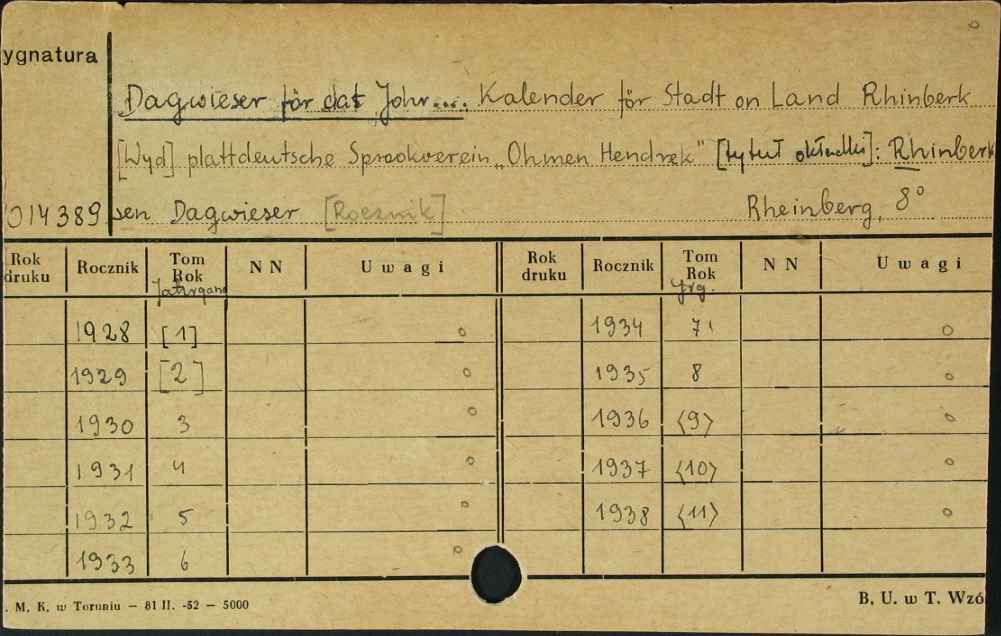 ygnatura
Dagwieser för dat Johr.... Kalender för Stadt on Land Rhinberk
[Wyd] plattdeutsche Sprookverein „Ohmen Hendrek" [tytuł okładki]: Rhinberk
014389 sen Dagwieser [Rocznik] Rheinberg, 8°
Rok druku Rocznik Tom Rok Jahrgang N N Uwagi Rok druku Rocznik Tom Rok Jrg. N N Uwagi
1928 [1] o 1934 7 o
1929 [2] o 1935 8 o
1930 3 o 1936 <9> o
1931 4 o 1937 <10> o
1932 5 o 1938 <11> o
1933 6 o
. M. K. w Toruniu — 81 II. -52 — 5000 B. U. w T. Wzó